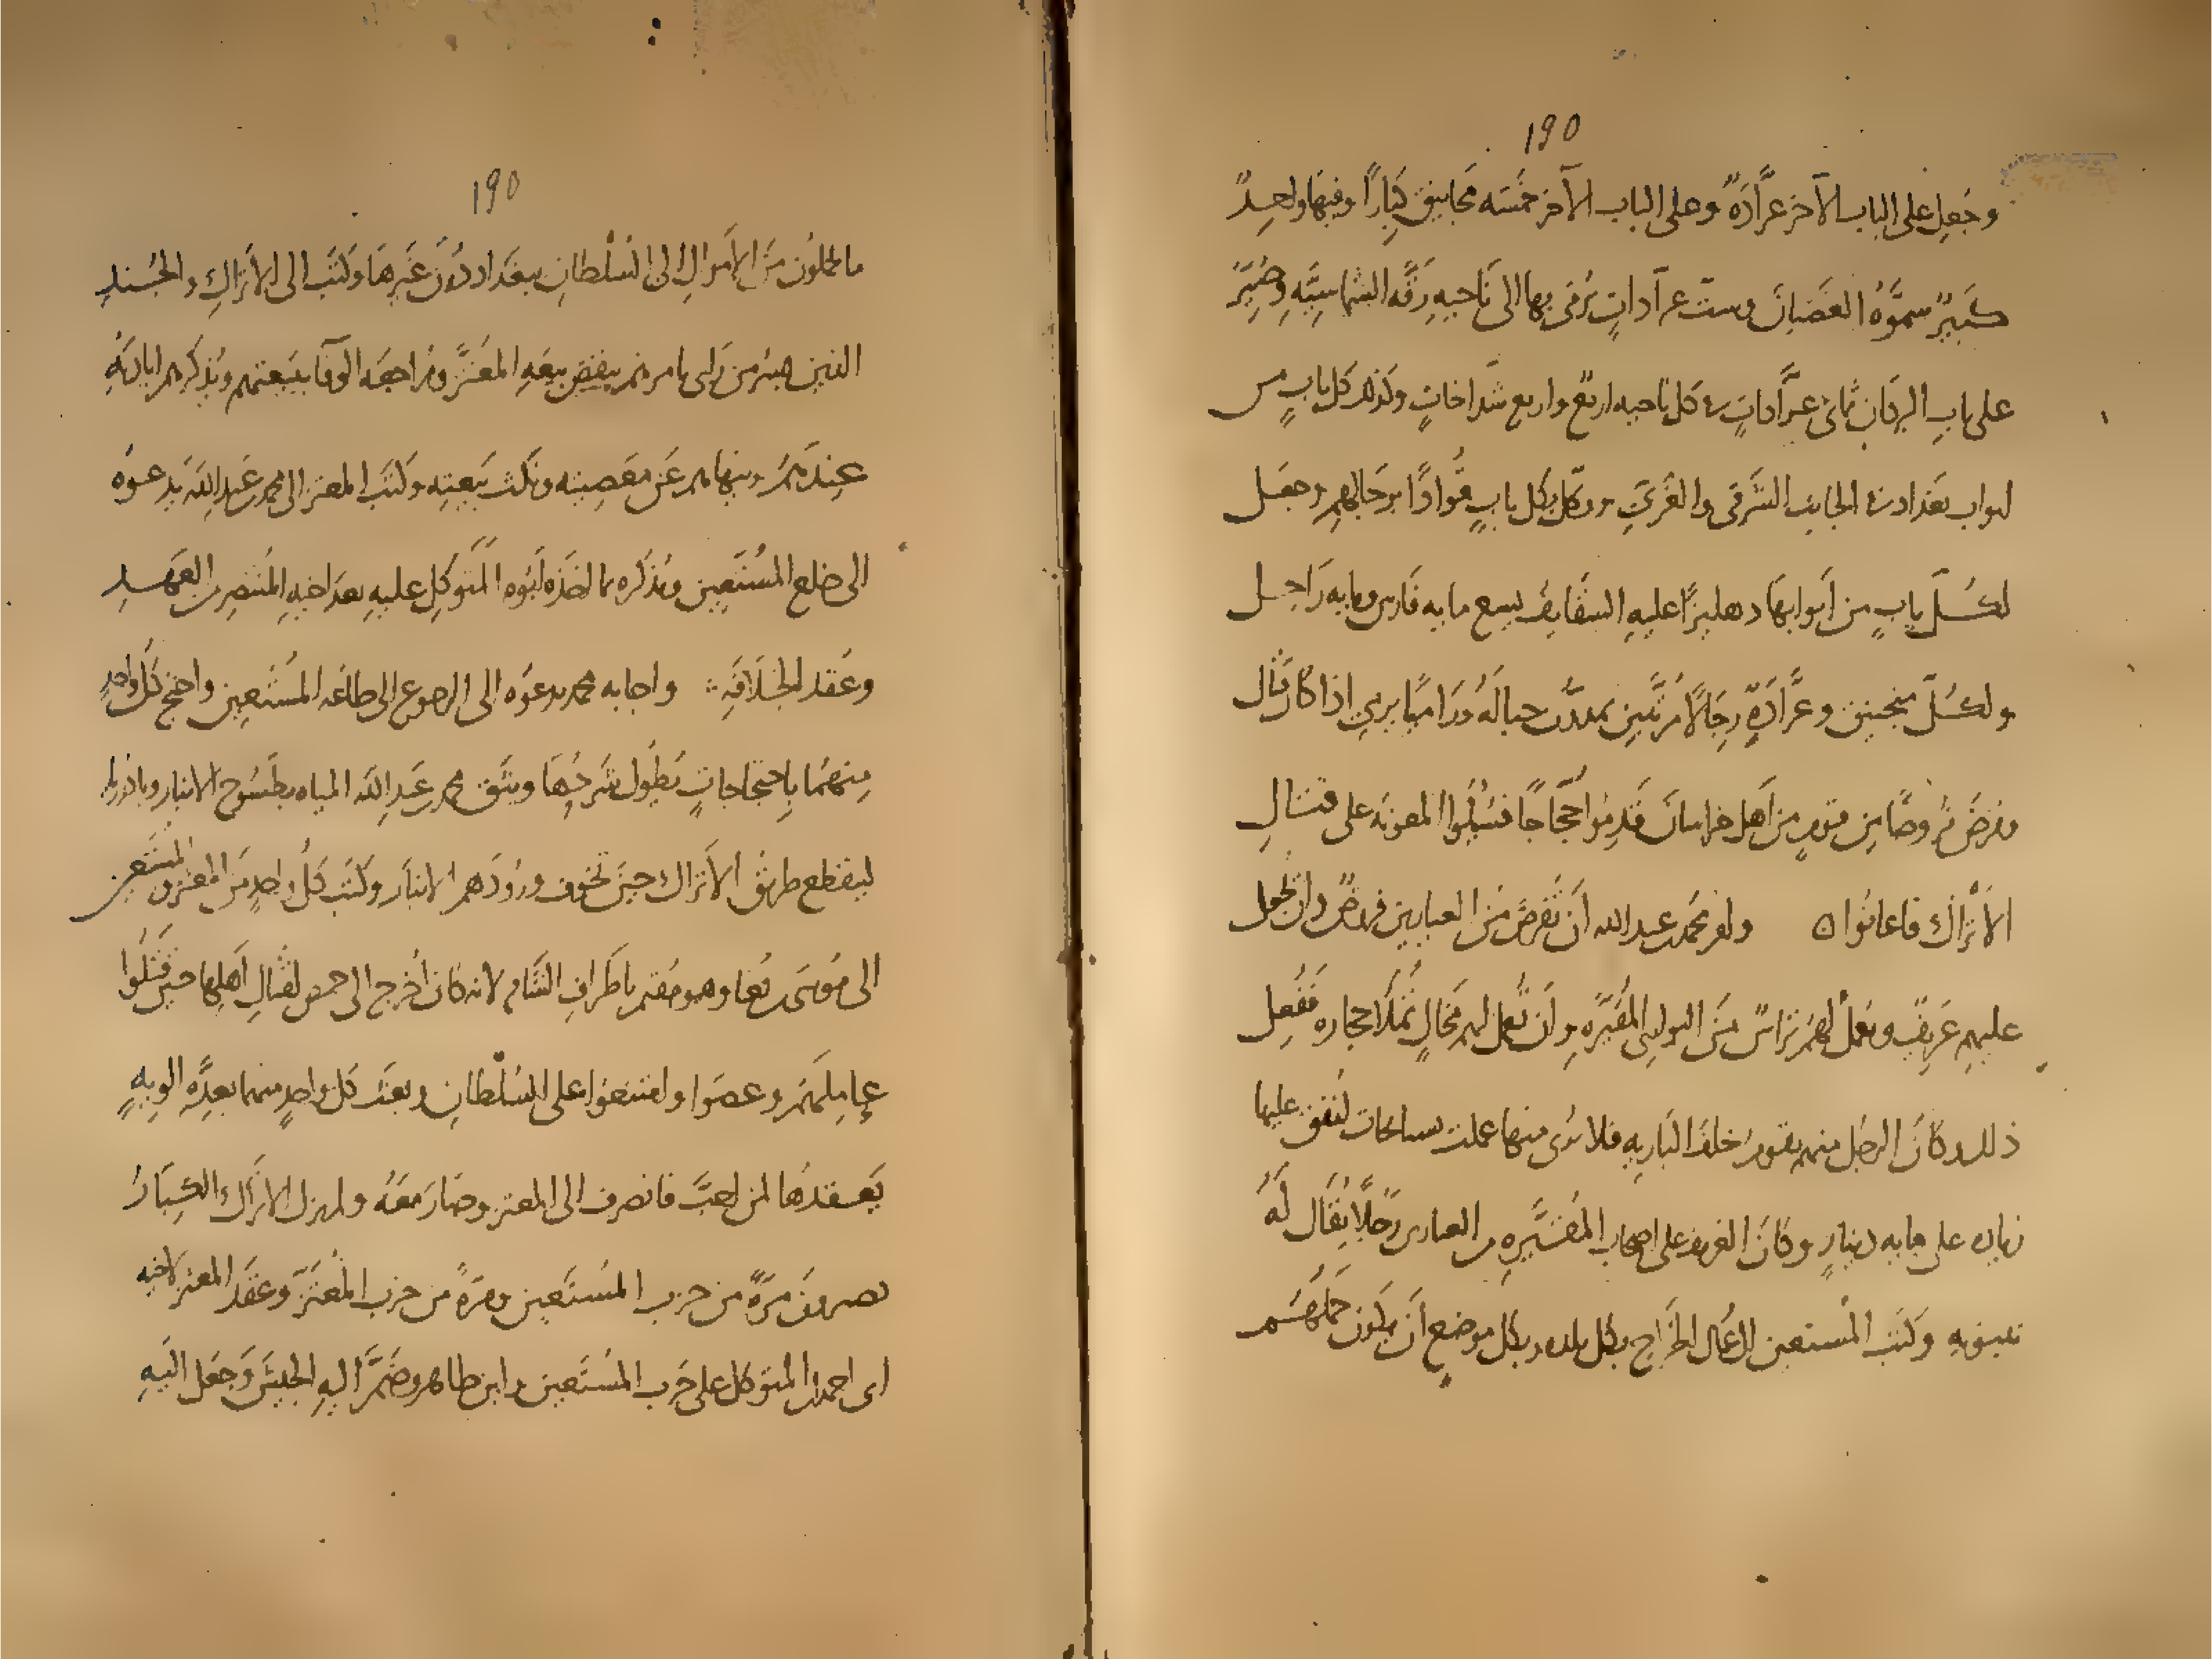 190
وجُعِل على الباب الآخر عرَّادَةٌ وعلى الباب الآخر خمسَه مجانيق كِبارًا وفيها واحدٌ
كبيرٌ سمَّوْهُ الغَضبانَ وستّ عرّاداتٍ يُرمَى بها الى ناحيهِ رَقَّه الشماسِيَّهِ وصُيِّرَ
على بابِ البردان ثمانى عرَّاداتٍ فى كل ناحيه اربعٌ واربع شدّاخاتٍ وكذلك كل بابٍ من
ابواب بغداد فى الجانب الشرقى والغربىّ ووكّل بكل بابٍ قُوادًا برجالهم وجعل
لكلّ بابٍ من أبوابها دهليزًا عليهِ السقايف يسع مايه فارسٍ ومايه رَاجل
ولكلّ منجنيق وعرَّادَةٍ رِجَالًا مُرتَّبين يمدّون حباله ورَاميًا يرمى اذا كان قتال
وفرضَ فروضًا من قومٍ من أهل خراسان قَدِمُوا حُجّاجًا فسُئِلُوا المعونه على قتالِ
الأتْراك فاعانُوا ن وامر محمّد بن عبد الله أن يُفرضَ من العيارين فرضٌ وان يُجعل
عليهم عَرِيفٌ ويُعملَ لهم تراسٌ من البوارى المُقَيَّرهِ وأن يُعمل لهم مخالٍ تُملَأ حجاره ففُعِل
ذلك وكانَ الرجل منهم يقوم خلفَ الباريهِ فلا يُرى منها عملت نساجات انفق عليها
زياده على مايه دينارٍ وكانَ العريف على اصحاب المُقيَّرهِ من العيارين رجُلًا يُقَال لَهُ
ينتويه وكَتبَ المُستعين الى عُمال الخَرَاج بكل بلده وبكل موضع أن يكون حملُهُم
190
ما يحملون من الامْوال الى السُلْطان ببغداد دُونَ غيرهَا وكَتَبَ الى الأتراكِ والجُندِ
الذين بسُرّ من رأى يامرهم بنقضِ بيعهِ المُعتزّ ومُراجعَه الوفآ ببَيعتهم ويُذكّرهم اياديَهُ
عِندَهُم وينهاهم عَن معصيته ونكث بَيعته وكَتَبَ المعتز الى محمد بن عَبد الله يَدعوه
الى خلع المُستَعين ويُذكره ما اخذه أبُوه المتوكل عليهِ بعدَ اخيهِ المُنتصِر من العَهدِ
وعَقد الخِلافَهِ ∴ واجابه محمد يدعُوه الى الرجوع الى طاعَه المُستَعين واحتج كُلّ واحدٍ
مِنهُمَا باِحتجاجاتٍ يَطُول شَرحُهَا وبَثَق محمد بن عَبد الله المياه بطَسُوج الانبار وبادُوريا
ليقطع طريقَ الأتراك حينَ تخوف ورُودَهم الانبَار وكَتَب كُلُّ واحدٍ من المعتز والمُستَعين
الى مُوسَى بن بُغا وهو مُقيم باَطرافِ الشَّام لانه كان أُخرج الى حمص لقتالِ اَهلِها حين قتَلُوا
عاملَهُم وعصَوا وامتنعُوا على السُلْطان وبعَث كلُّ واحدٍ منهما بعِدَّهِ الويهٍ
يَعقدُها لمن احبَّ فانصرف الى المعتز وصَارَ مَعَهُ ولم يزل الاترَاك الكِبَارُ
يصيرونَ مَرَّهً من حزب المُستَعين ومَرّهً من حزب المُعْتَزّ وعَقَد المعتز لاخيه
ابى احمد بن المُتوكل على حَرب المُستَعين وابن طاهر وضَمَّ اليهِ الجيشَ وجَعَل اليهِ